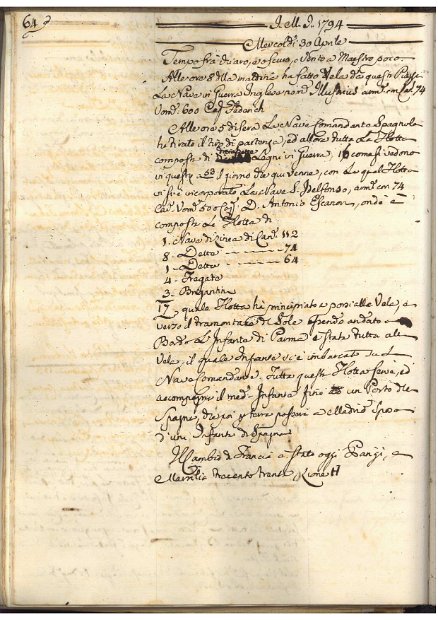 64
A dì d.° 1794
Mercoldì 30 Aprile
Tempo frà chiaro, e oscuro, e Vento a Maestro poco.
Alle ore 8 della mattina hà fatto Vela da questo
La Nave in Guerra Inglese nom.ª Illustrius arm. con Can. 74
Uom. 600 Cap.
Alle ore 5 di sera La Nave Comandante Spagnola
hà tirato il tiro di partenza, ed allora tutta La Flotta
composta di Legni in Guerra, 16 come si vedono
in questo 1 primo da qui venne, con La qual Flotta
si è incorporato La Nave S. Idelfonso, arm. con 74
Can. Uom. 600 Cap. D. Antonio Escanon, onde è
composta La Flotta di
1. Nave di Linea di Can. 112
8. Dette 74
1. Detta 64
4. Fregate
3. Brigantini
17 quale Flotta hà principiato a porsi alla Vela, e
verso il tramontare del Sole essendo andato a
Bordo L'Infante di Parma è stata tutta alla
Vela, il quale Infante si è imbarcato sul
Nave Comandante, tutta questa Flotta serve, ed
accompagna il med.° Infante fino ad un Porto della
Spagna, da poi per terra passerà a Madrid Sposo
d'una Infanta di Spagna
Il Cambio di Francia è stato oggi Parigi, e
Marsilia trecento trenta